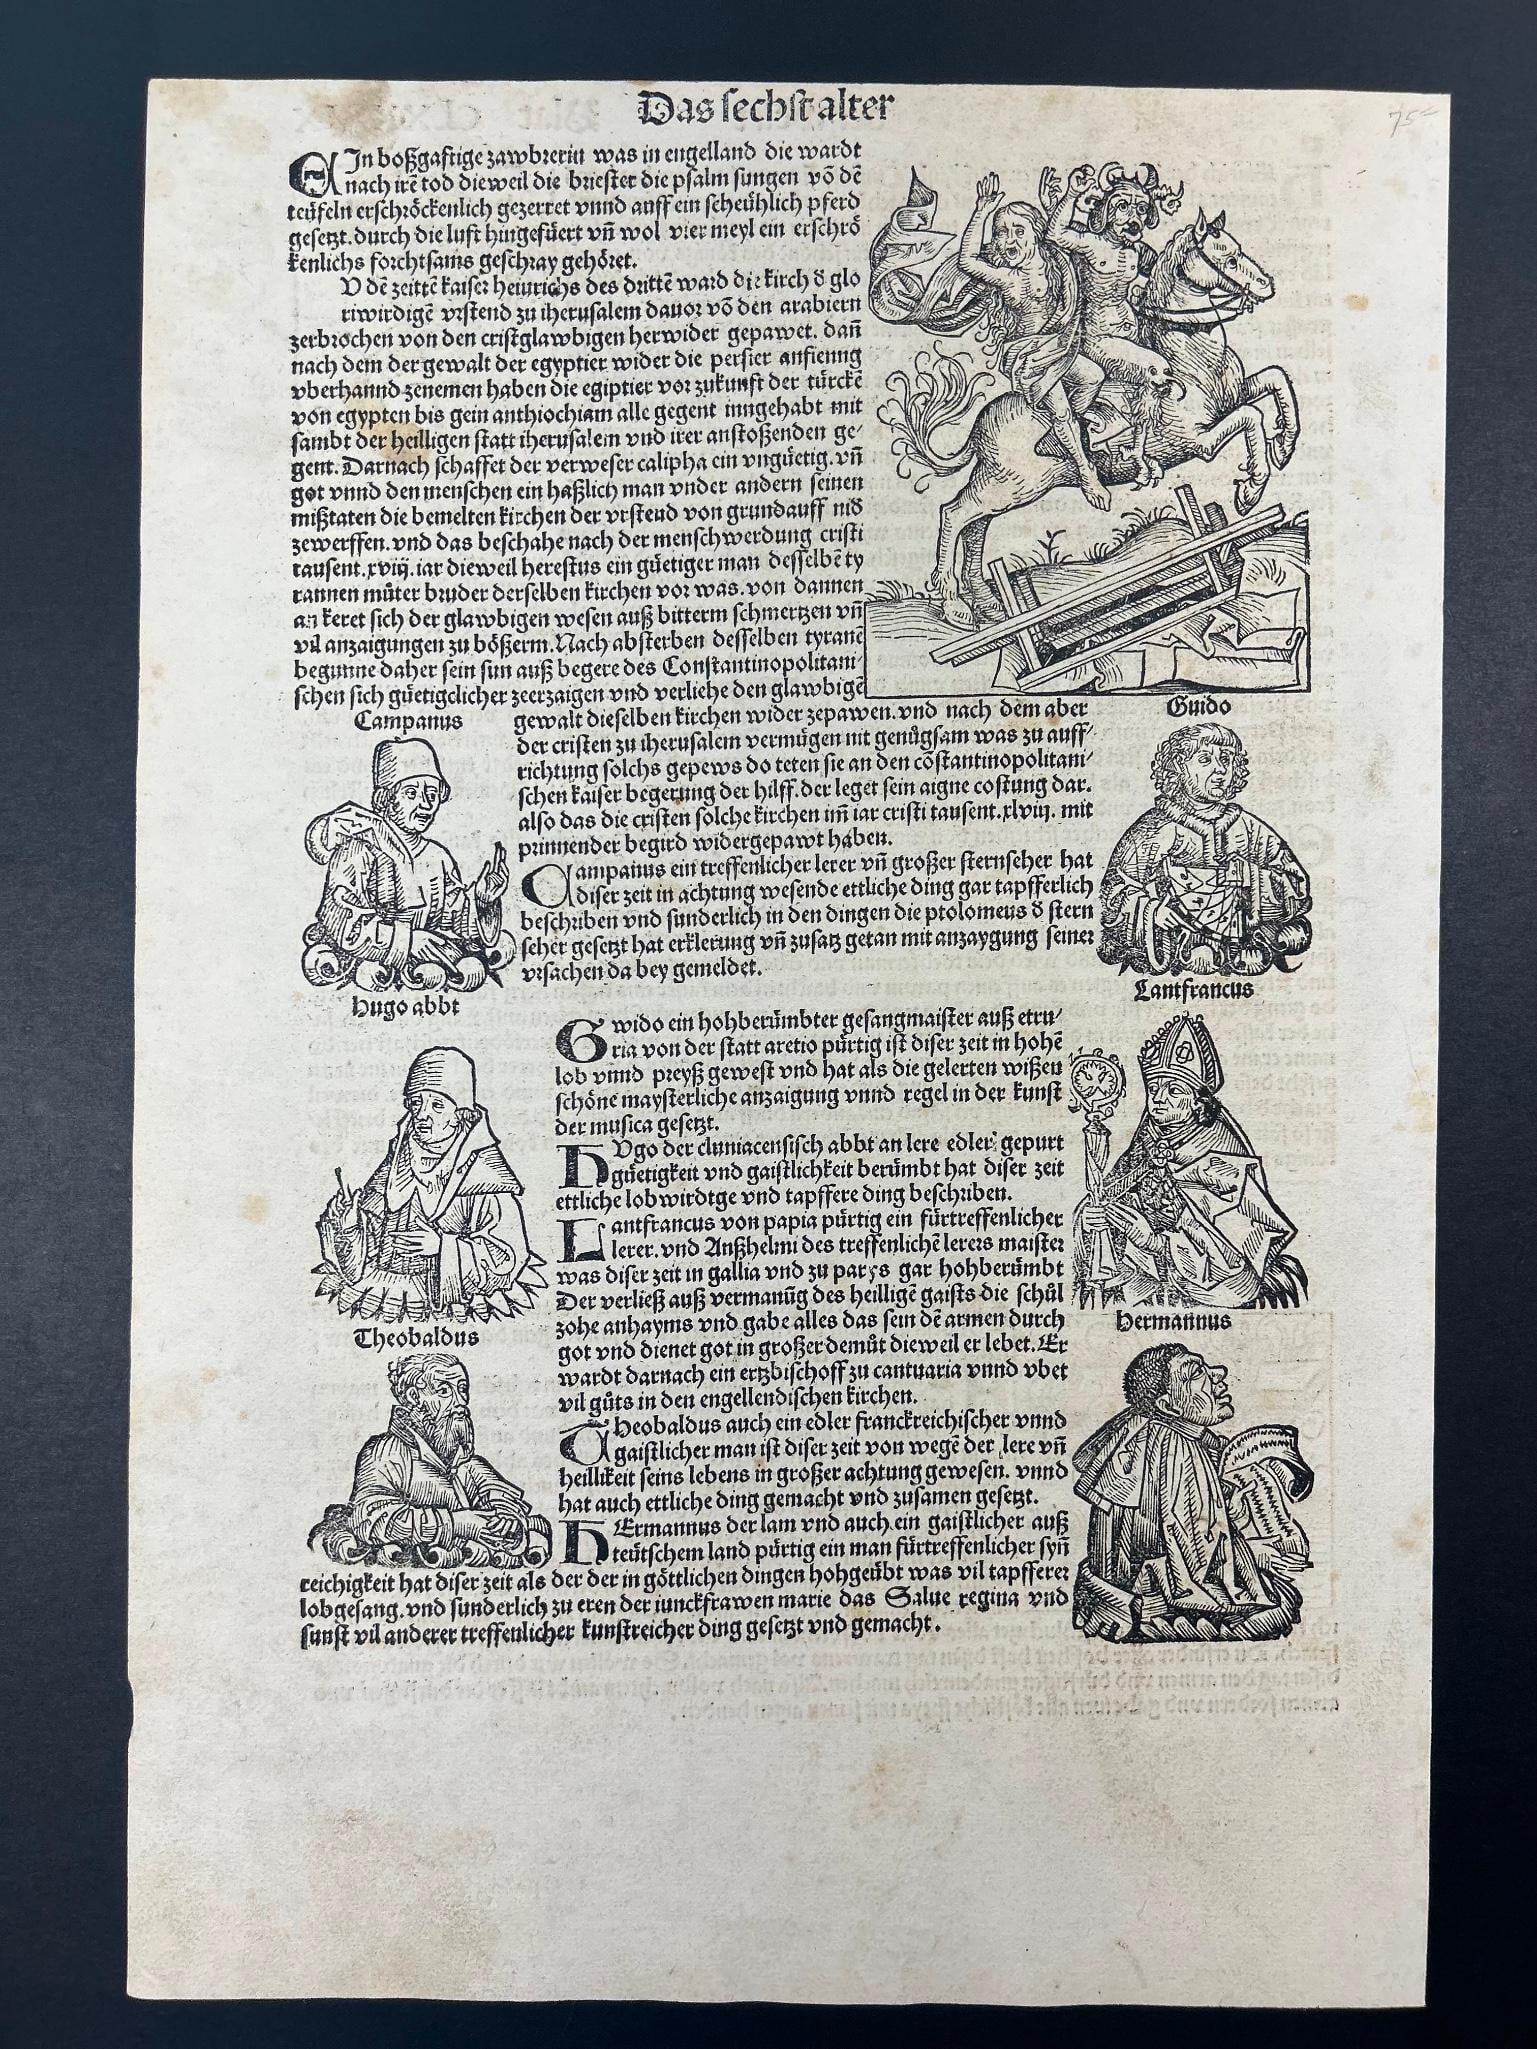 Das sechst alter
75-
EIn boßhaftige zawbrerin was in engelland die wardt
nach irē tod dieweil die briester die psalm sungen vō dē
teüfeln erschröckenlich gezerret vnnd auff ein scheühlich pferd
gesetzt. durch die luft hingefüert vñ wol vier meyl ein erschrö
kenlichs forchtsams geschray gehöret.
V dē zeittē kaiser heinrichs des drittē ward die kirch d glo
riwirdigē vrstend zu iherusalem dauor vō den arabiern
zerbrochen von den cristglawbigen herwider gepawet. dañ
nach dem der gewalt der egyptier wider die persier anfienng
vberhannd zenemen haben die egiptier vor zukunft der türckē
von egypten bis gein anthiochiam alle gegent inngehabt mit
sambt der heilligen statt iherusalem vnd irer anstoßenden ge-
gent. Darnach schaffet der verweser calipha ein vngüetig. vñ
got vnnd den menschen ein haßlich man vnder andern seinen
mißtaten die bemelten kirchen der vrstend von grundauff nid
zewerffen. vnd das beschahe nach der menschwerdung cristi
tausent. xviij. iar dieweil herestus ein güetiger man desselbē ty
rannen můter bruder derselben kirchen vor was. von dannen
an keret sich der glawbigen wesen auß bitterm schmertzen vñ
vil anzaigungen zu bößerm. Nach absterben desselben tyranē
begunne daher sein sun auß begere des Constantinopolitani-
schen sich güetigclicher zeerzaigen vnd verliehe den glawbigē
Campanus
Guido
gewalt dieselben kirchen wider zepawen. vnd nach dem aber
der cristen zu iherusalem vermügen nit genůgsam was zu auff-
richtung solchs gepews do teten sie an den cōstantinopolitani-
schen kaiser begerung der hilff. der leget sein aigne costung dar.
also das die cristen solche kirchen im iar cristi tausent. xlviij. mit
prinnender begird widergepawt haben.
Campanus ein treffenlicher lerer vñ großer sternseher hat
diser zeit in achtung wesende ettliche ding gar tapfferlich
beschriben vnd sunderlich in den dingen die ptolomeus d stern
seher gesetzt hat erklerung vñ zusatz getan mit anzaygung seiner
vrsachen da bey gemeldet.
Hugo abbt
Lantfrancus
Gwido ein hohberümbter gesangmaister auß etru-
ria von der statt aretio pürtig ist diser zeit in hohē
lob vnnd preyß gewest vnd hat als die gelerten wißen
schöne maysterliche anzaigung vnnd regel in der kunst
der musica gesetzt.
HVgo der cluniacensisch abbt an lere edler gepurt
güetigkeit vnd gaistlichkeit berümbt hat diser zeit
ettliche lobwirdige vnd tapffere ding beschriben.
Lantfrancus von papia pürtig ein fürtreffenlicher
lerer. vnd Anßhelmi des treffenlichē lerers maister
was diser zeit in gallia vnd zu parys gar hohberümbt
Der verließ auß vermanūg des heilligē gaists die schůl
zohe anhayms vnd gabe alles das sein dē armen durch
got vnd dienet got in großer demůt dieweil er lebet. Er
wardt darnach ein ertzbischoff zu cantuaria vnnd vbet
vil gůts in den engellendischen kirchen.
Theobaldus
Hermannus
THeobaldus auch ein edler franckreichischer vnnd
gaistlicher man ist diser zeit von wegē der lere vñ
heillikeit seins lebens in großer achtung gewesen. vnnd
hat auch ettliche ding gemacht vnd zusamen gesetzt.
HErmannus der lam vnd auch ein gaistlicher auß
teütschem land pürtig ein man fürtreffenlicher syñ
reichigkeit hat diser zeit als der der in göttlichen dingen hohgeübt was vil tapfferer
lobgesang. vnd sunderlich zu eren der iunckfrawen marie das Salue regina vnd
sunst vil anderer treffenlicher kunstreicher ding gesetzt vnd gemacht.